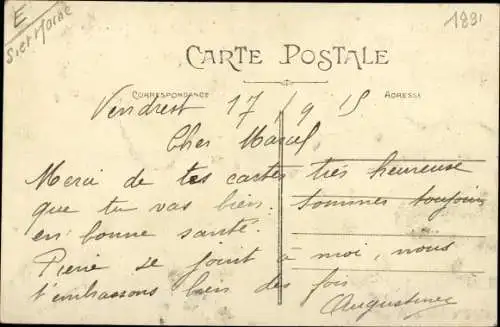 E
S et Marne
1831
CARTE POSTALE
CORRESPONDANCE
ADRESSE
Vendrest 17/9 15
Cher Marcel
Merci de tes cartes très heureuse
que tu vas bien. sommes toujours
en bonne santé.
Pierre se joint à moi, nous
t'embrassons bien des fois
Augustine